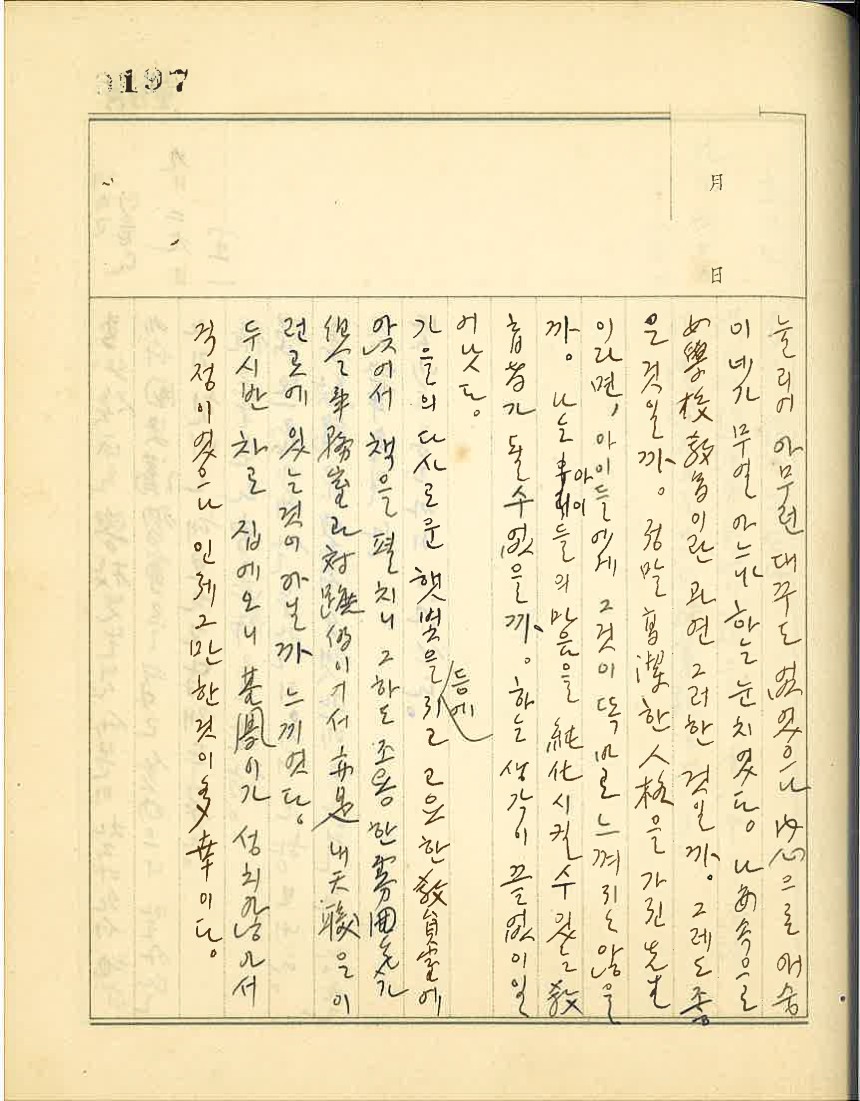 197
月
日
눌리어 아무런 대꾸도 없었으나 内心으로 애숭
이 네가 무얼 아느냐 하는 눈치였다. 나 內속으로
學校敎育이란 과연 그러한 것일까. 그래도 좋
은 것일까. 정말 高潔한 人格을 가진 先生
이라면, 아이들에게 그것이 똑바로 느껴지는 않을
까. 나는 아이들의 마음을 純化시킬 수 있는 敎
育者가 될 수 없을까. 하는 생각이 끝없이 일
어났다.
가을의 다사로운 햇볕을 등에 지고 고요한 敎員室에
앉어서 책을 펼치니 그 하도 조용한 雰囲気가
事務室과 対 이어서 亦是 내 天職은 이
런 곳에 있는 것이 아닐까 느끼었다.
두시반 차로 집에 오니 基鳳이가 성치 않아서
걱정이었으나 인제 그만한 것이 多幸이다.